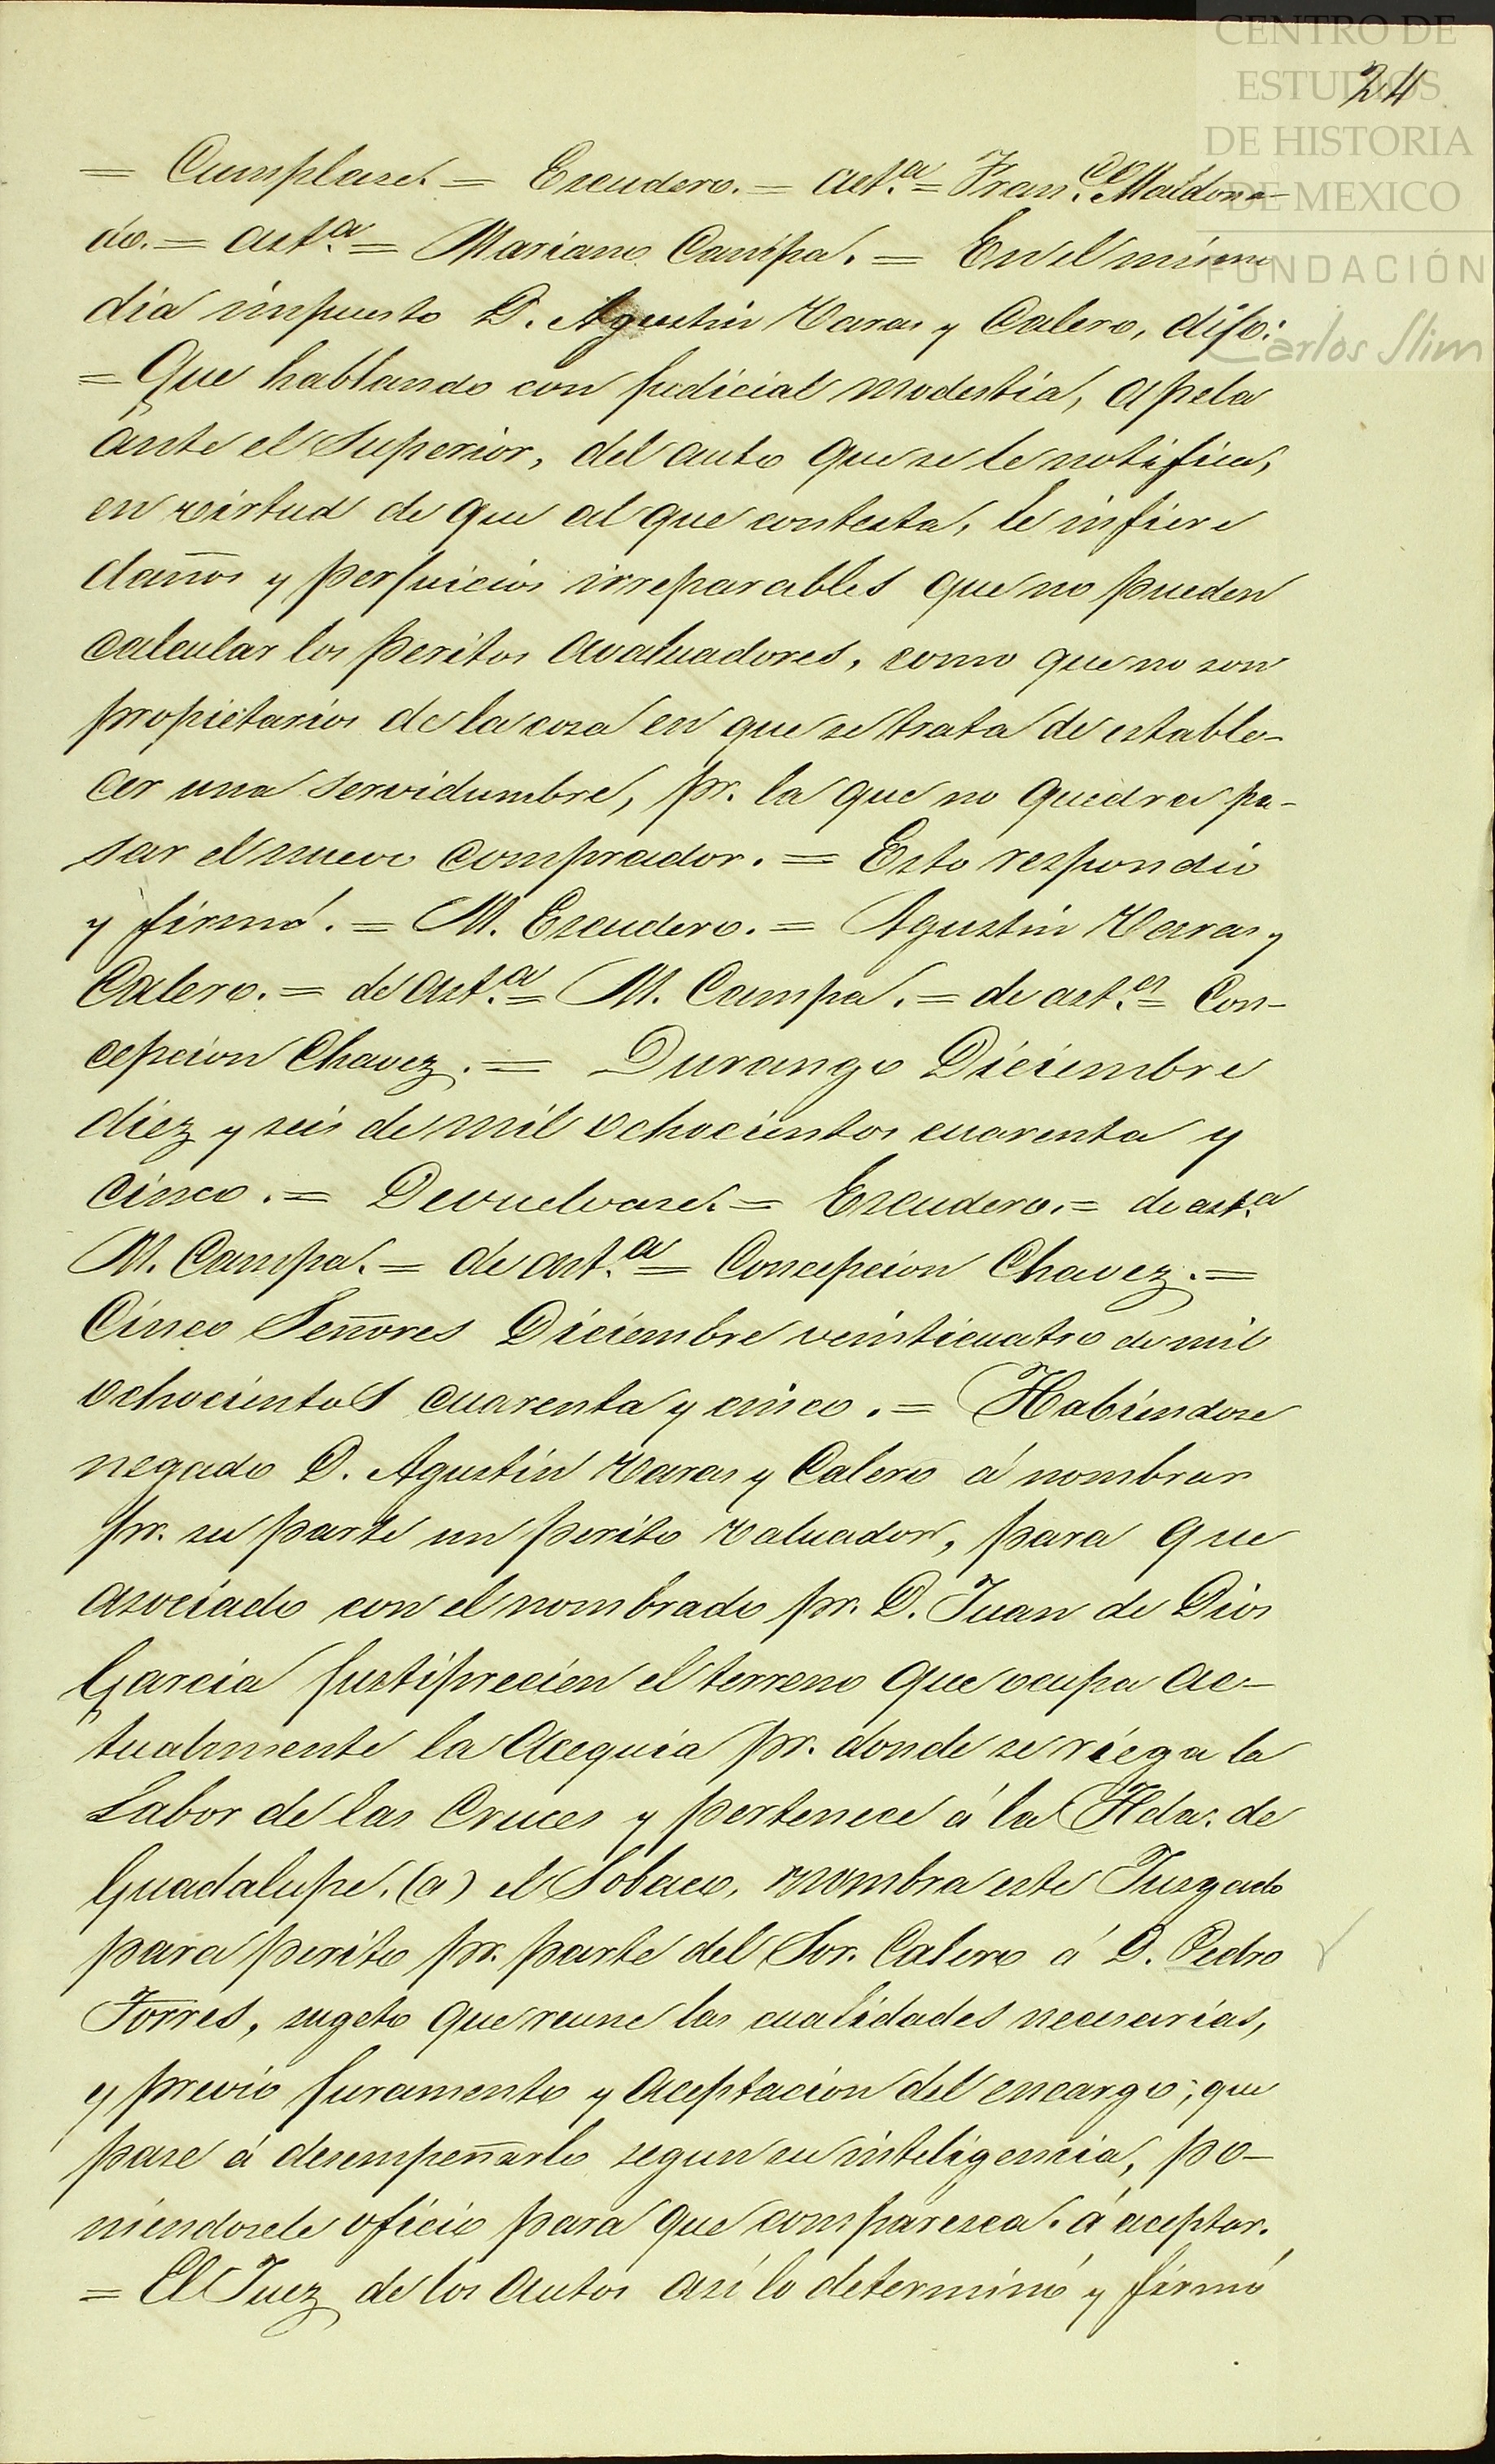 CENTRO DE
ESTUDIOS
DE HISTORIA
DE MEXICO
FUNDACIÓN
Carlos Slim
24
= Cumplase. = Escudero. = ast.ª = Fran.co Maldona-
do. = ast.ª = Mariano Campa. = En el mismo
dia impuesto D. Agustin Varas y Calero, dijo:
= Que hablando con judicial modestia, apela
ante el Superior, del auto que se le notifica,
en virtud de que al que contesta, le infiere
daños y perjuicios irreparables que no pueden
calcular los peritos avaluadores, como que no son
propietarios de la cosa en que se trata de estable-
cer una servidumbre, pr. la que no quedra pa-
sar el nuevo comprador. = Esto respondio
y firmó. = M. Escudero. = Agustin Varas y
Calero. = de ast.ª = M. Campa. = de ast.ª = Con-
cepcion Chavez. = Durango Diciembre
diez y seis de mil ochocientos cuarenta y
cinco. = Devuelvase. = Escudero. = de ast.ª
M. Campa. = de ast.ª = Concepcion Chavez. =
Cinco Señores Diciembre veinticuatro de mil
ochocientos cuarenta y cinco. = Habiendose
negado D. Agustin Varas y Calero á nombrar
pr. su parte un perito valuador, para que
asociado con el nombrado pr. D. Juan de Dios
Garcia justiprecien el terreno que ocupa ac-
tualmente la Acequia pr. donde se riega la
Labor de las Cruces y pertenece á la Hda. de
Guadalupe. (a) el Sobaco, nombra este Juzgado
para perito pr. parte del Sor. Calero á D. Pedro
Torres, sugeto que reune las cualidades necesarias,
y previo juramento y aceptacion del encargo; que
pase á desempeñarlo segun su inteligencia, po-
niendosele oficio para que comparesca. á aceptar.
= El Juez de los autos así lo determinó y firmó